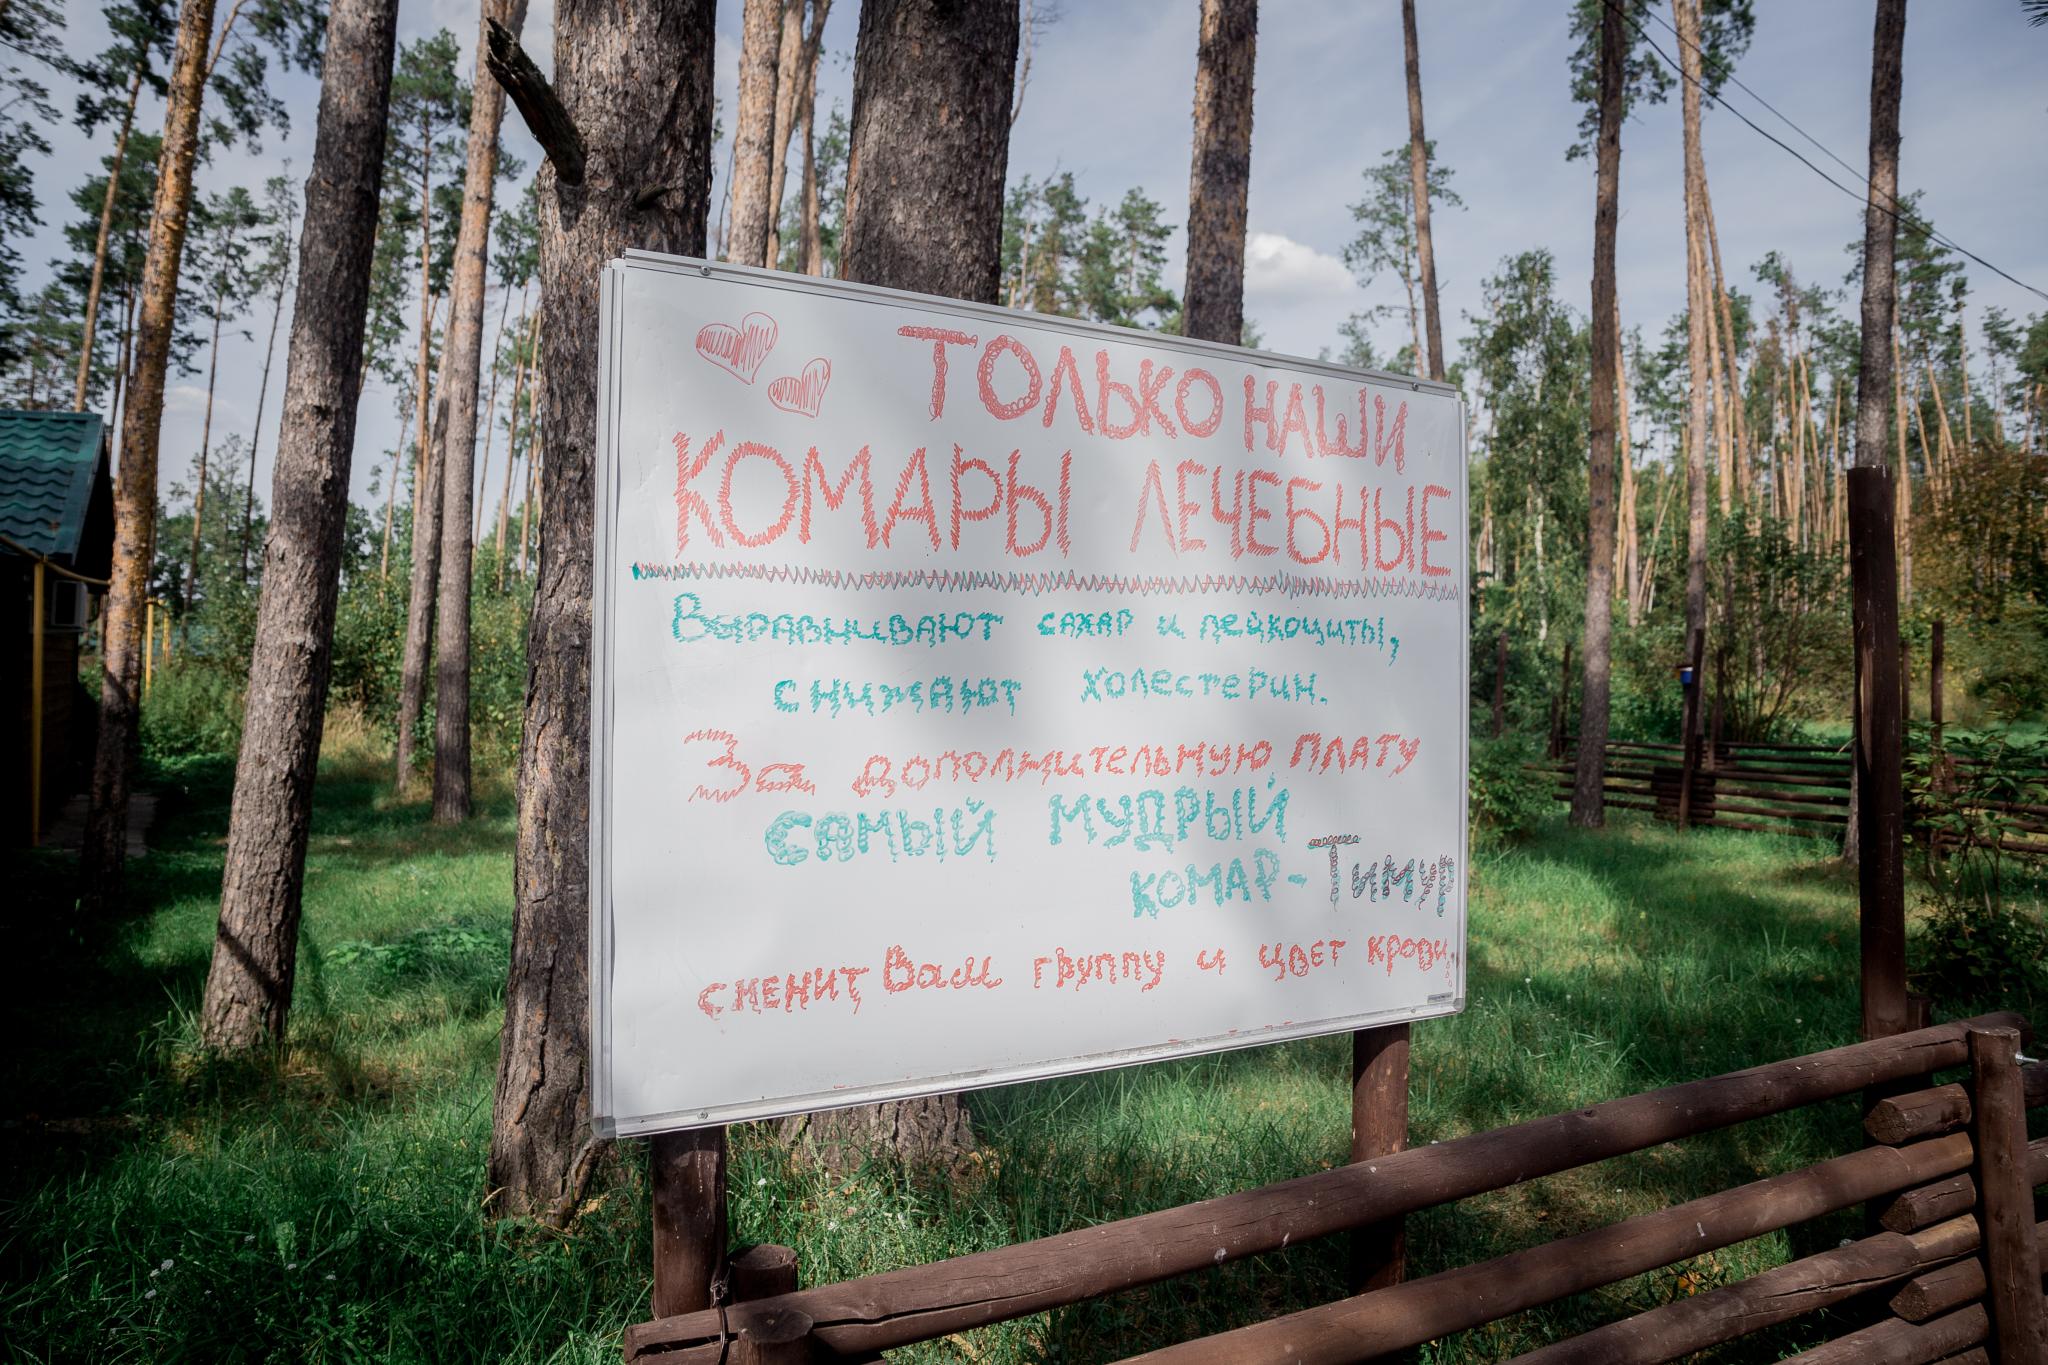 ТОЛЬКО НАШИ
КОМАРЫ ЛЕЧЕБНЫЕ
Выравнивают сахар и лейкоциты,
снимают холестерин.
За дополнительную плату
самый мудрый
комар - Тимур
сменит Ваш группу и цвет крови